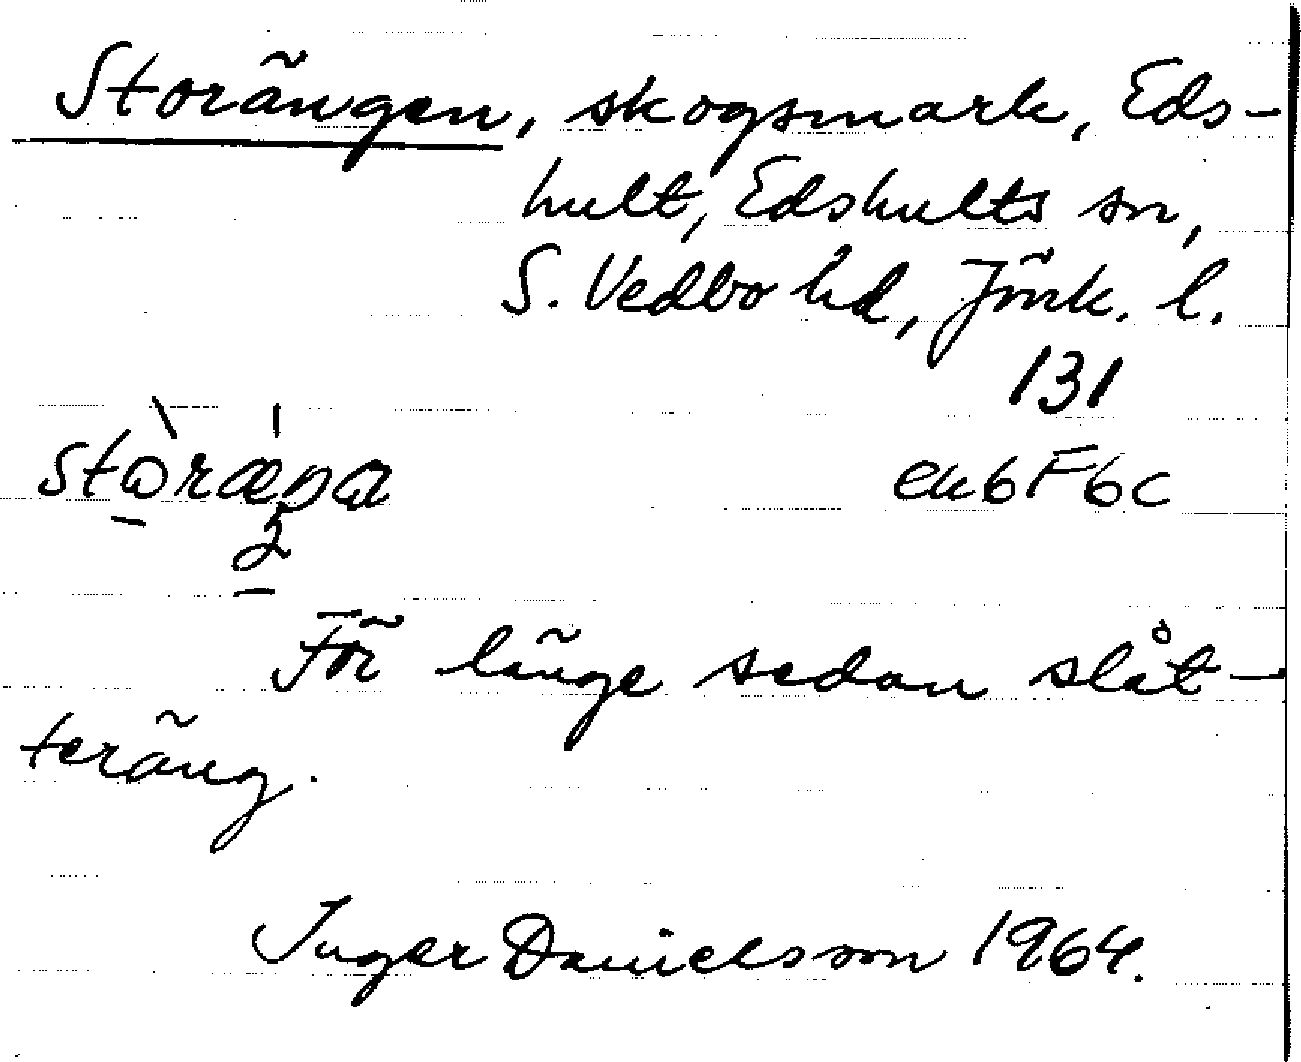 Storängen, skogsmark, Eds-
hult, Edshults sn,
S. Vedbo hd, Jönk. l.
131
ek6F6c
För länge sedan slåt-
teräng.
Inger Danielsson 1964.